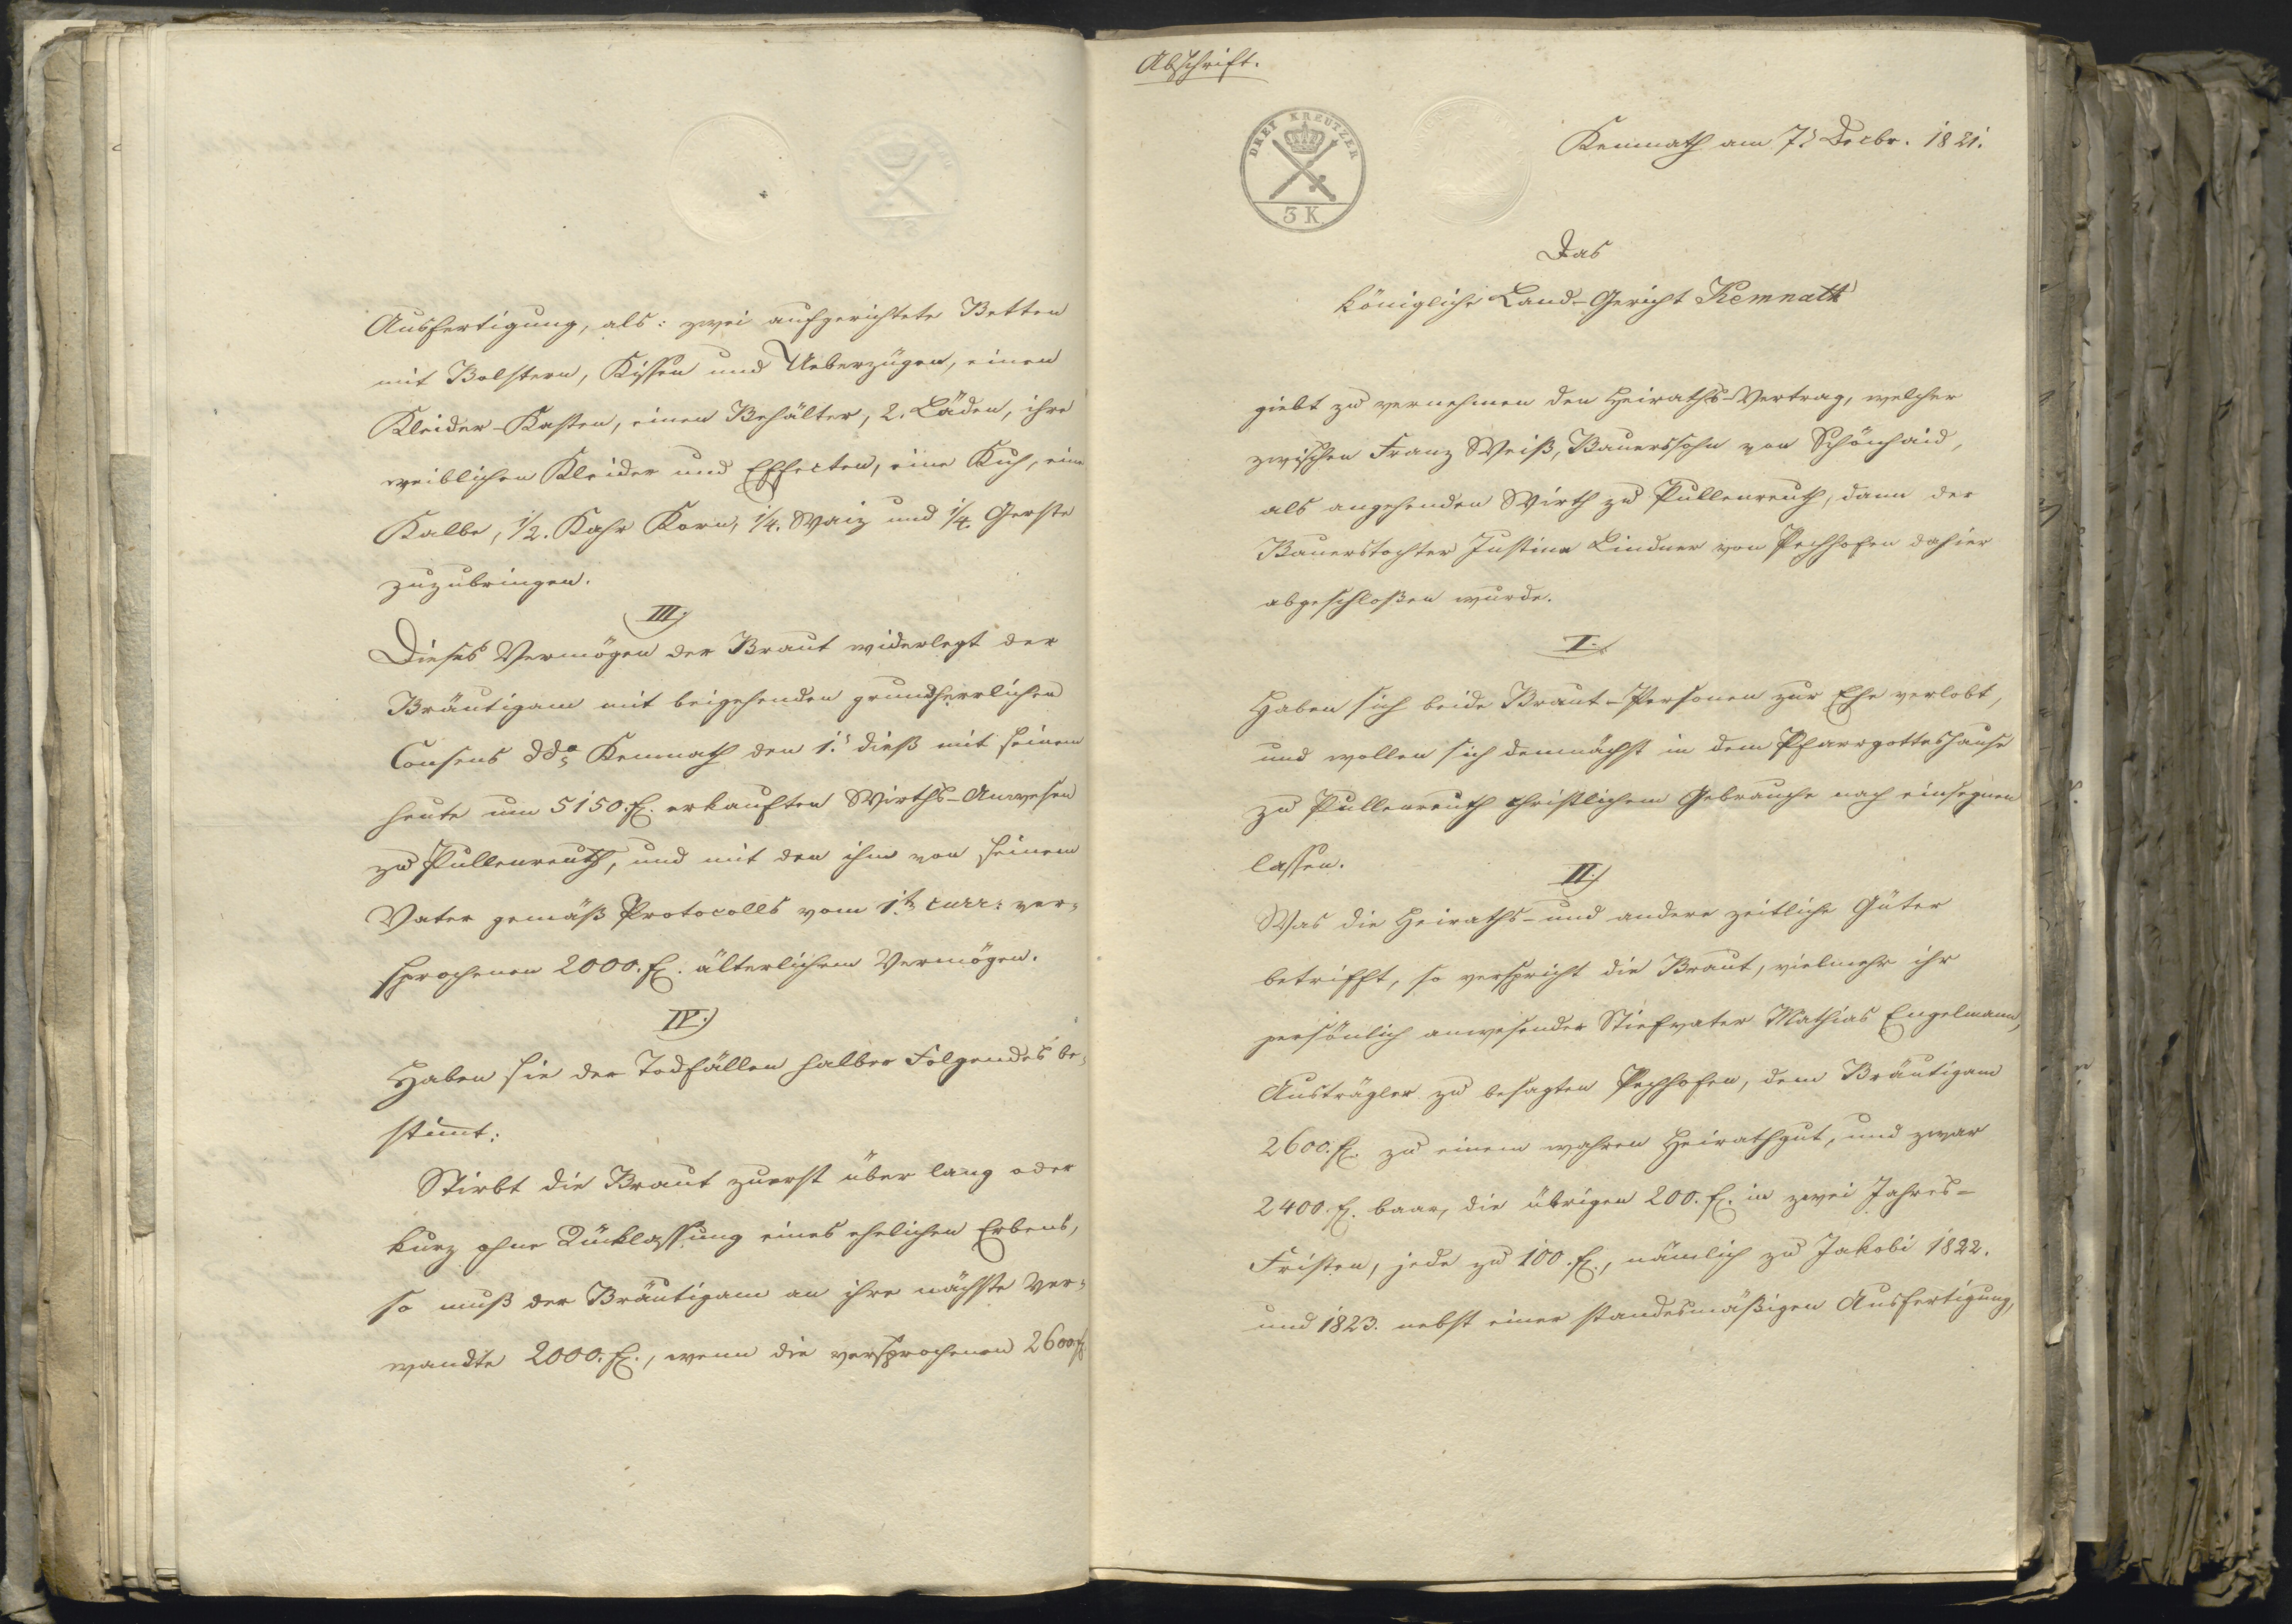 Ausfertigung, als: zwei aufgerichtete Betten
mit Bolstern, Kissen und Ueberzügen, einen
Kleider-Kasten, einen Behälter, 2. Läden, ihre
weiblichen Kleider und Effecten, eine Kuh, eine
Kalbe, 1/2. Kahr Korn, 1/4. Waiz und 1/4. Gerste
zuzubringen.
III.)
Dieses Vermögen der Braut widerlegt der
Bräutigam mit beigehenden grundherrlichen
Consens ddo Kemnath den 1.s dieß mit seinem
heute um 5150. fl. erkauften Wirths-Anwesen
zu Pullenreuth, und mit den ihm von seinem
Vater gemäß Protocolls vom 1.t curr: ver-
sprochenen 2000. fl. älterlichem Vermögen.
IV.)
Haben sie der Todfällen halber Folgendes be-
stimmt:
Stirbt die Braut zuerst über lang oder
kurz ohne Rücklassung eines ehelichen Erbens,
so muß der Bräutigam an ihre nächste Ver-
wandte 2000. fl., wenn die versprochenen 2600 fl
Abschrift.
DREY KREUTZER
3 K
Kemnath am 7.s Decbr. 1821.
Das
königliche Land-Gericht Kemnath
giebt zu vernehmen den Heiraths-Vertrag, welcher
zwischen Franz Weiß, Bauerssohn von Schönhaid,
als angehenden Wirth zu Pullenreuth, dann der
Bauerstochter Justina Lindner von Pechhofen dahier
abgeschloßen wurde.
I.
Haben sich beide Braut-Personen zur Ehe verlobt,
und wollen sich demnächst in dem Pfarrgotteshause
zu Pullenreuth christlichem Gebrauche nach einsegnen
lassen.
II.)
Was die Heiraths- und andere zeitliche Güter
betrifft, so verspricht die Braut, vielmehr ihr
persönlich anwesender Stiefvater Mathias Engelmann,
Austrägler zu besagten Pechhofen, dem Bräutigam
2600. fl. zu einem wahren Heirathgut, und zwar
2400. fl. baar, die übrigen 200. fl. in zwei Jahres-
Fristen, jede zu 100. fl., nämlich zu Jakobi 1822.
und 1823. nebst einer standesmäßigen Ausfertigung,